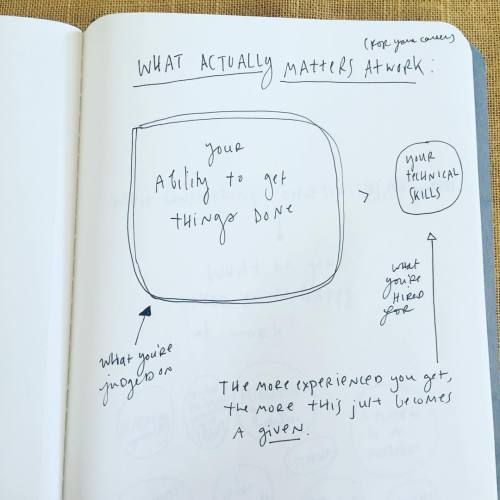 (FOR your career)
WHAT ACTUALLY MATTERS AT WORK:
your
Ability to get
things DONE
>
your
technical
skills
what
you're
hired
for
what you're
judged on
The more experienced you get,
the more this just becomes
a given.